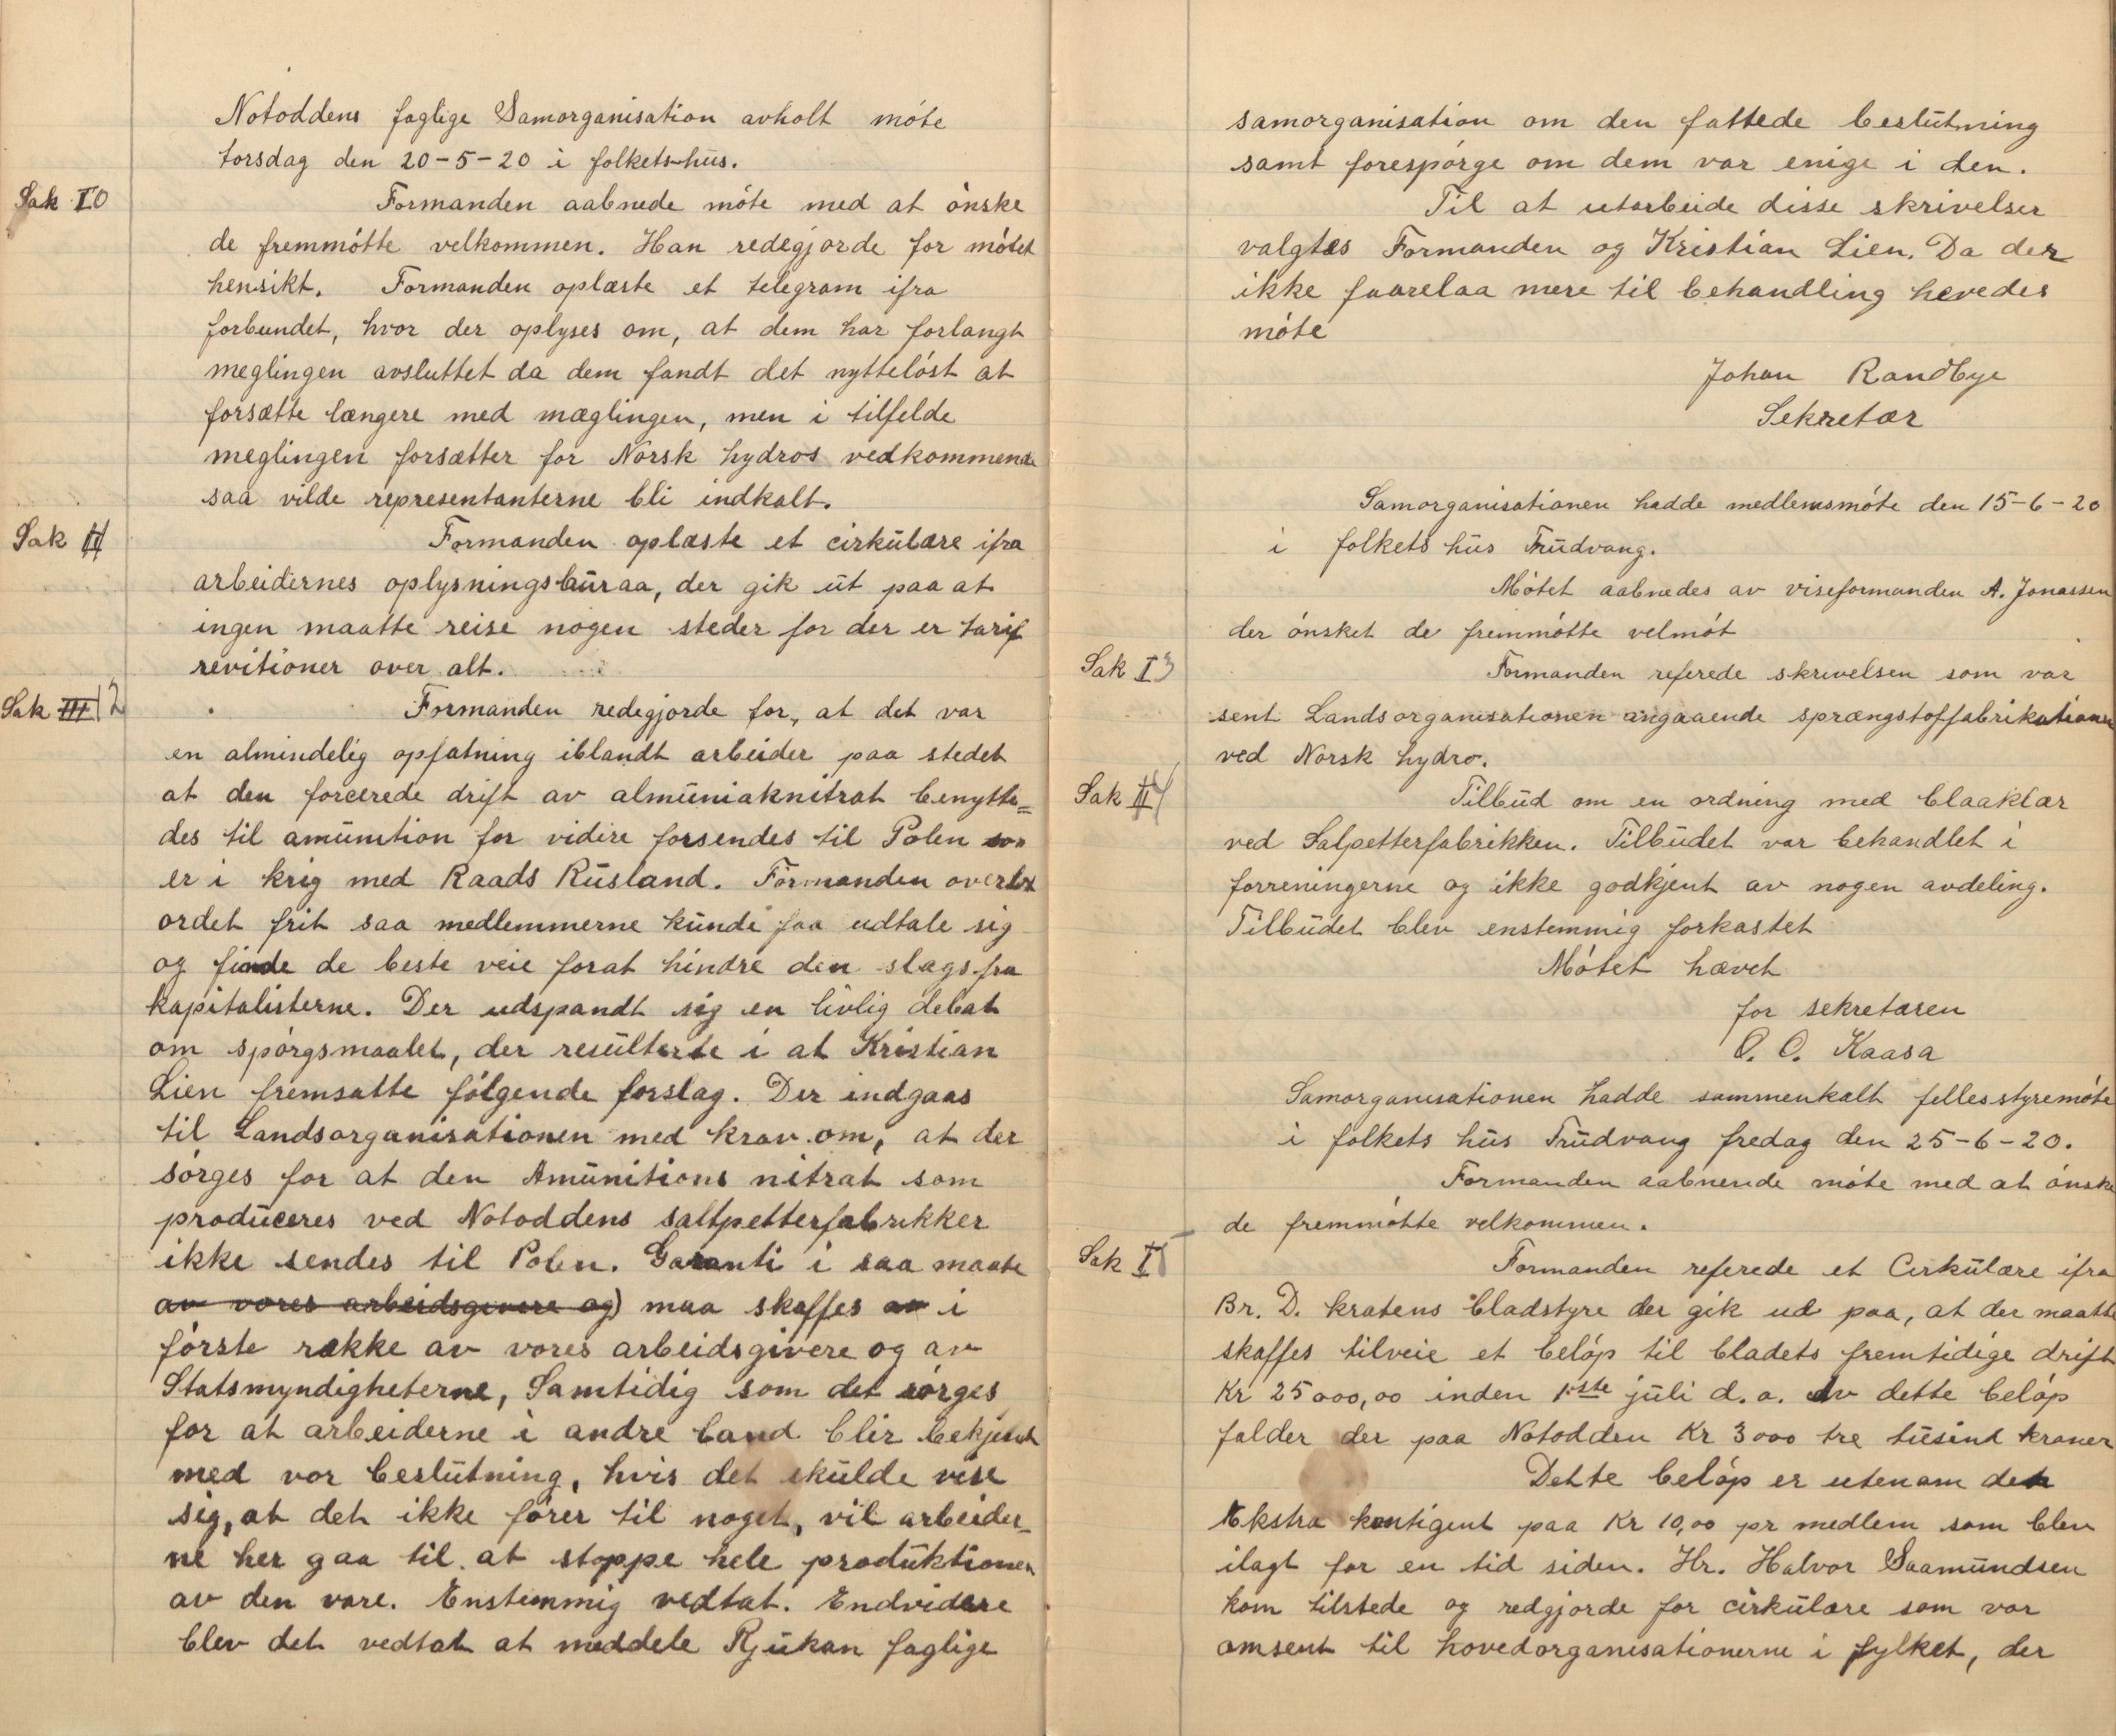 Notoddens faglige Samorganisation avholt móte
torsdag den 20-5-20 i folkets-hus.
Sak I0
Formanden aabnede móte med at ónske
de fremmótte velkommen. Han redegjorde for mótet
hensikt. Formanden oplæste et telegram ifra
forbundet, hvor der oplyses om, at dem har forlangt
meglingen avsluttet da dem fandt det nyttelóst at
forsætte længere med mæglingen, men i tilfelde
meglingen forsætter for Norsk hydros vedkommende
saa vilde representanterne bli indkalt.
Sak II
Formanden oplæste et cirkulære ifra
arbeidernes oplysningsburaa, der gik ut paa at
ingen maatte reise nogen steder for der er tarif
revitioner over alt.
Sak III 12
Formanden redegjorde for, at det var
en almindelig opfatning iblandt arbeider paa stedet
at den forcerede drift av almuniaknitrat benytte=
des til amunition for vidire forsendes til Polen som
er i krig med Raads Rusland. Formanden overlot
ordet frit saa medlemmerne kunde faa udtale sig
og finde de beste veie forat hindre den slags fra
kapitalisterne. Der udspandt sig en livlig debat
om spórgsmaalet, der resulterte i at Kristian
Lien fremsatte fólgende forslag. Der indgaas
til Landsorganisationen med krav om, at der
sórges for at den Amunitions nitrat som
produceres ved Notoddens saltpetterfabrikker
ikke sendes til Polen. Garanti i saa maate
av vores arbeidsgivere og) maa skaffes av i
fórste række av vores arbeidsgivere og av
Statsmyndigheterne, Samtidig som det sórges
for at arbeiderne i andre land blir bekjent
med vor beslutning, hvis det skulde vise
sig, at det ikke fórer til noget, vil arbeider_
ne her gaa til at stoppe hele produktionen
av den vare. Enstemmig vedtat. Endvidere
blev det vedtat at meddele Rjukan faglige
samorganisation om den fattede beslutning
samt forespórge om dem var enige i den.
Til at utarbeide disse skrivelser
valgtes Formanden og Kristian Lien. Da der
ikke faarelaa mere til behandling hevedes
móte
Johan Randbye
Sekretær
Samorganisationen hadde medlemsmóte den 15-6-20
i folkets hus Trudvang.
Mótet aabnedes av viseformanden A. Jonassen
der ónsket de fremmótte velmót
Sak I3
Formanden referede skrivelsen som var
sent Landsorganisationen angaaende sprængstoffabrikationen
ved Norsk hydro.
Sak II4
Tilbud om en ordning med blaaklær
ved Salpetterfabrikken. Tilbudet var behandlet i
forreningerne og ikke godkjent av nogen avdeling.
Tilbudet blev enstemmig forkastet
Mótet hævet
for sekretæren
O. O. Kaasa
Samorganisationen hadde sammenkalt fellesstyremóte
i folkets hus Trudvang fredag den 25-6-20.
Formanden aabnende móte med at ónske
de fremmótte velkommen.
Sak I5
Formanden referede et Cirkulære ifra
Br. D. kratens bladstyre der gik ud paa, at der maatte
skaffes tilveie et belóp til bladets fremtidige drift
Kr 25000,00 inden 1ste juli d.a. Av dette belóp
falder der paa Notodden Kr 3000 tre tusind kroner
Dette belóp er utenom det
Ekstra kontigent paa Kr 10,00 pr medlem som blev
ilagt for en tid siden. Hr. Halvor Saamundsen
kom tilstede og redgjorde for cirkulære som var
omsent til hovedorganisationerne i fylket, der